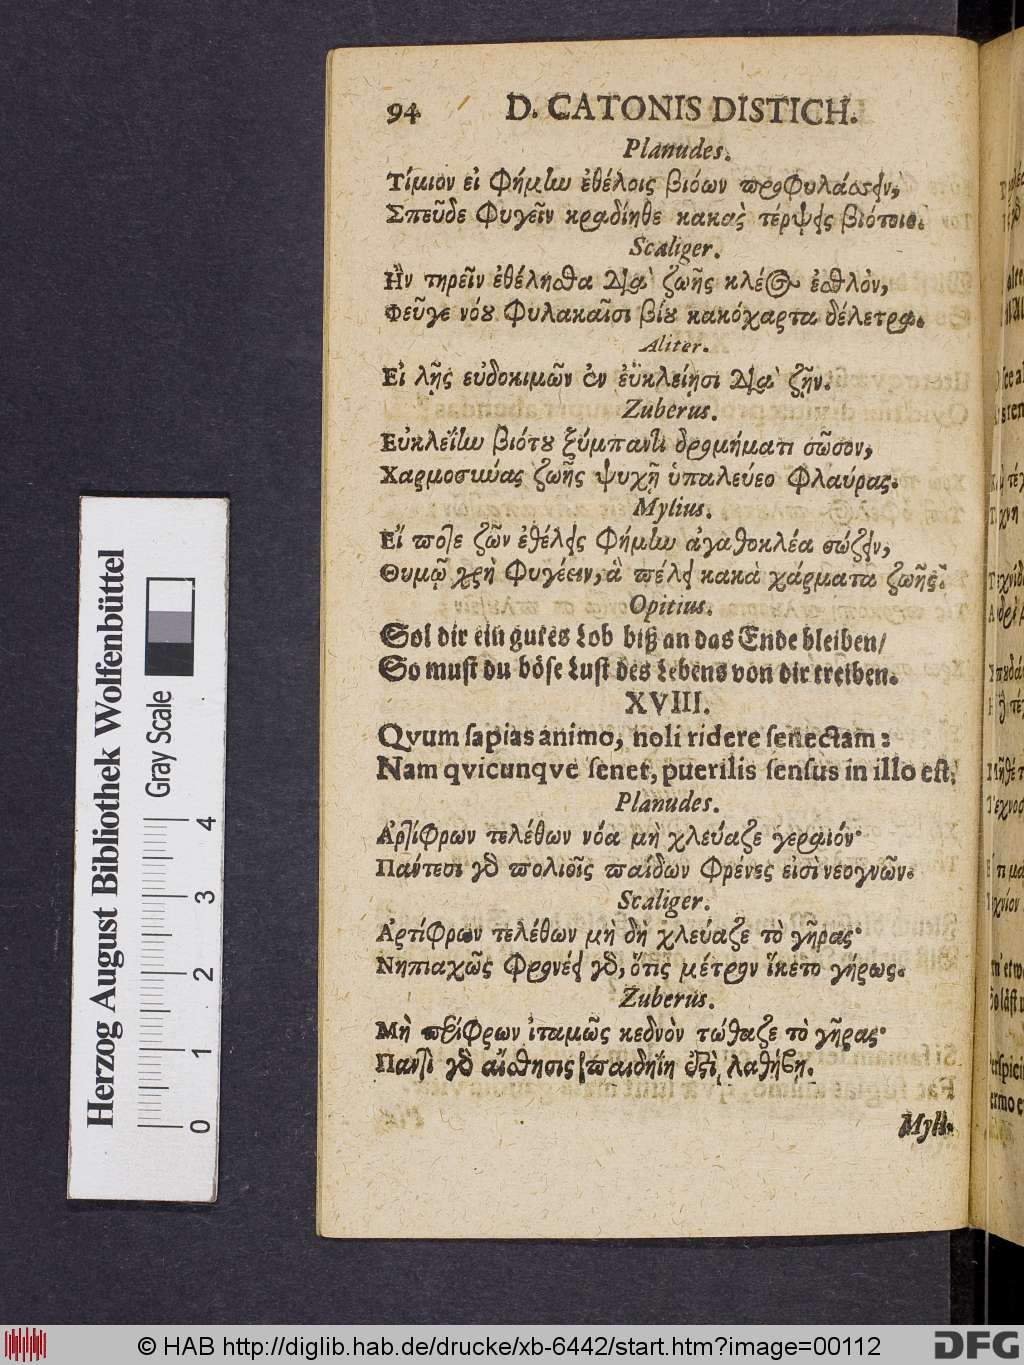 94 D. CATONIS DISTICH.
Planudes.
Τίμιον εἰ Φήμην ἐθέλοις βιόων προφυλάσσειν,
Σπεῦδε Φυγεῖν κραδίηθε κακὰς τέρψεις βιότοιο.
Scaliger.
Ἢν τηρεῖν ἐθέλησθα διὰ ζωῆς κλέος ἐσθλὸν,
Φεῦγε νόου Φυλακαῖσι βίου κακόχαρτα δέλετρα.
Aliter.
Εἰ λῇς εὐδοκιμῶν ἐν ἐϋκλείῃσι διὰ ζῇν.
Zuberus.
Εὐκλεΐην βιότου ξύμπαντι δρομήματι σῶσον,
Χαρμοσύνας ζωῆς ψυχῇ ὑπαλεύεο Φλαύρας.
Mylius.
Εἴ ποτε ζῶν ἐθέλεις Φήμην ἀγαθοκλέα σώζειν,
Θυμῷ χρὴ Φυγέειν, ἃ πέλει κακὰ χάρματα ζωῆς.
Opitius.
Sol dir ein gutes Lob biß an das Ende bleiben/
So must du böse Lust des Lebens von dir treiben.
XVIII.
Qvum sapias animo, noli ridere senectam:
Nam qvicunqve senet, puerilis sensus in illo est.
Planudes.
Ἀρτίφρων τελέθων νόα μὴ χλεύαζε γεραιόν·
Πάντεσι γὰρ πολιοῖς παίδων Φρένες εἰσὶ νεογνῶν.
Scaliger.
Ἀρτίφρων τελέθων μὴ δὴ χλεύαζε τὸ γῆρας·
Νηπιαχῶς Φρονέει γὰρ, ὅτις μέτρον ἵκετο γήρως.
Zuberus.
Μὴ περίφρων ἰταμῶς κεδνὸν τώθαζε τὸ γῆρας·
Παντὶ γὰρ αἴσθησις παιδηΐη ἐστὶ λαθήβῃ.
Myli.
Herzog August Bibliothek Wolfenbüttel
Gray Scale
0 1 2 3 4
© HAB http://diglib.hab.de/drucke/xb-6442/start.htm?image=00112
DFG